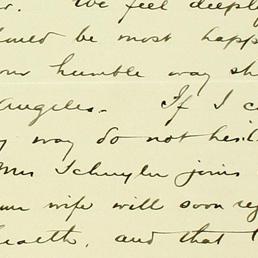 We feel deeply
would be most happ
our humble way sh
Angeles. If I c
y way do not hesit
Mrs Schuyler joins
your wife will soon reg
health, and that